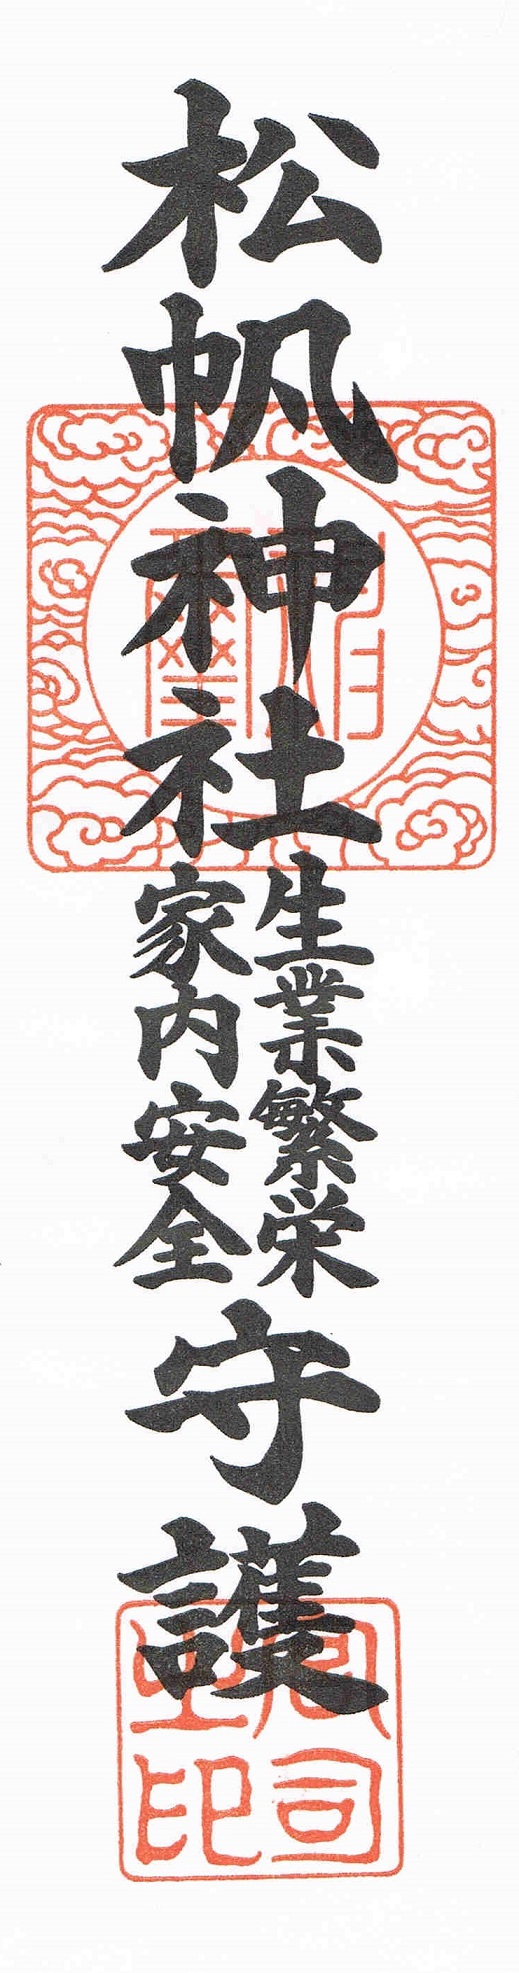 松帆神社
生業繁栄
家内安全
守護
宮司
之印